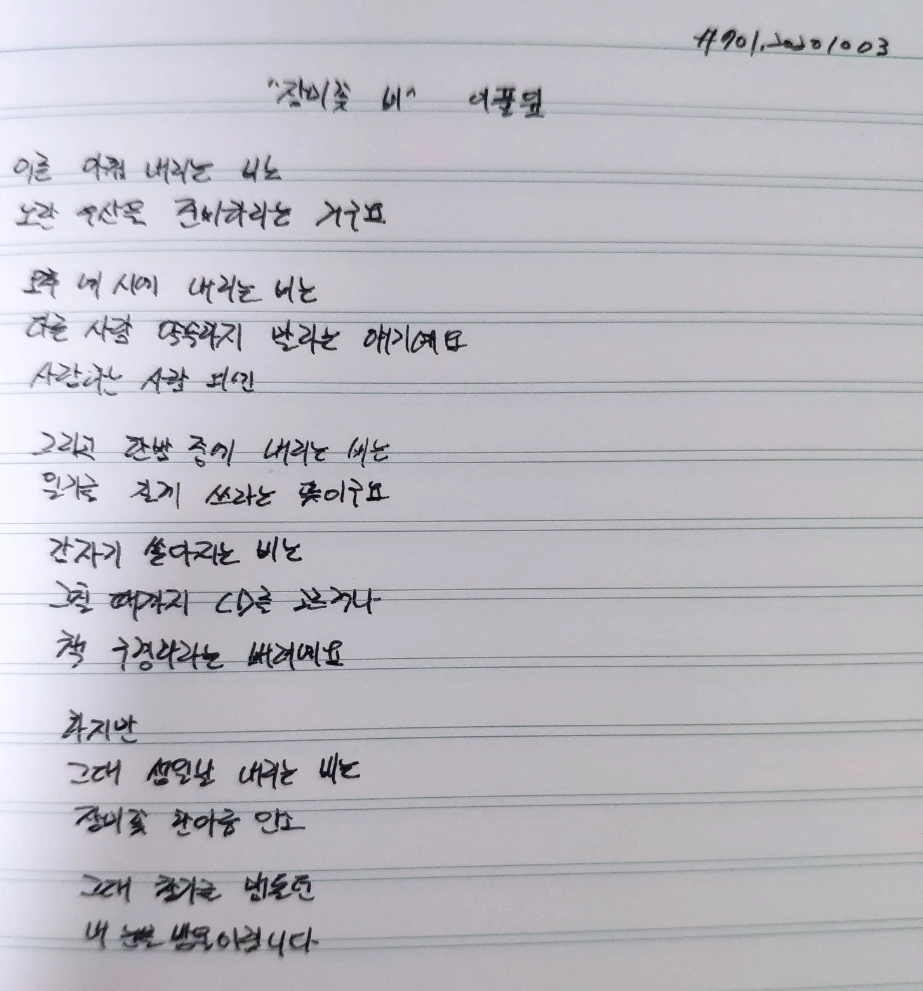 #901. 20201003
"장미꽃 비" 이풀잎
이른 아침 내리는 비는
노란 우산을 준비하라는 거구요
오후 네 시에 내리는 비는
다른 사람 약속하지 말라는 얘기예요
사랑하는 사람 외엔
그리고 한밤 중에 내리는 비는
일기를 길게 쓰라는 뜻이구요
갑자기 쏟아지는 비는
그칠 때까지 CD를 고르거나
책 구경하라는 배려예요
하지만
그대 생일날 내리는 비는
장미꽃 한아름 안고
그대 창가를 맴돌던
내 눈물 방울이랍니다